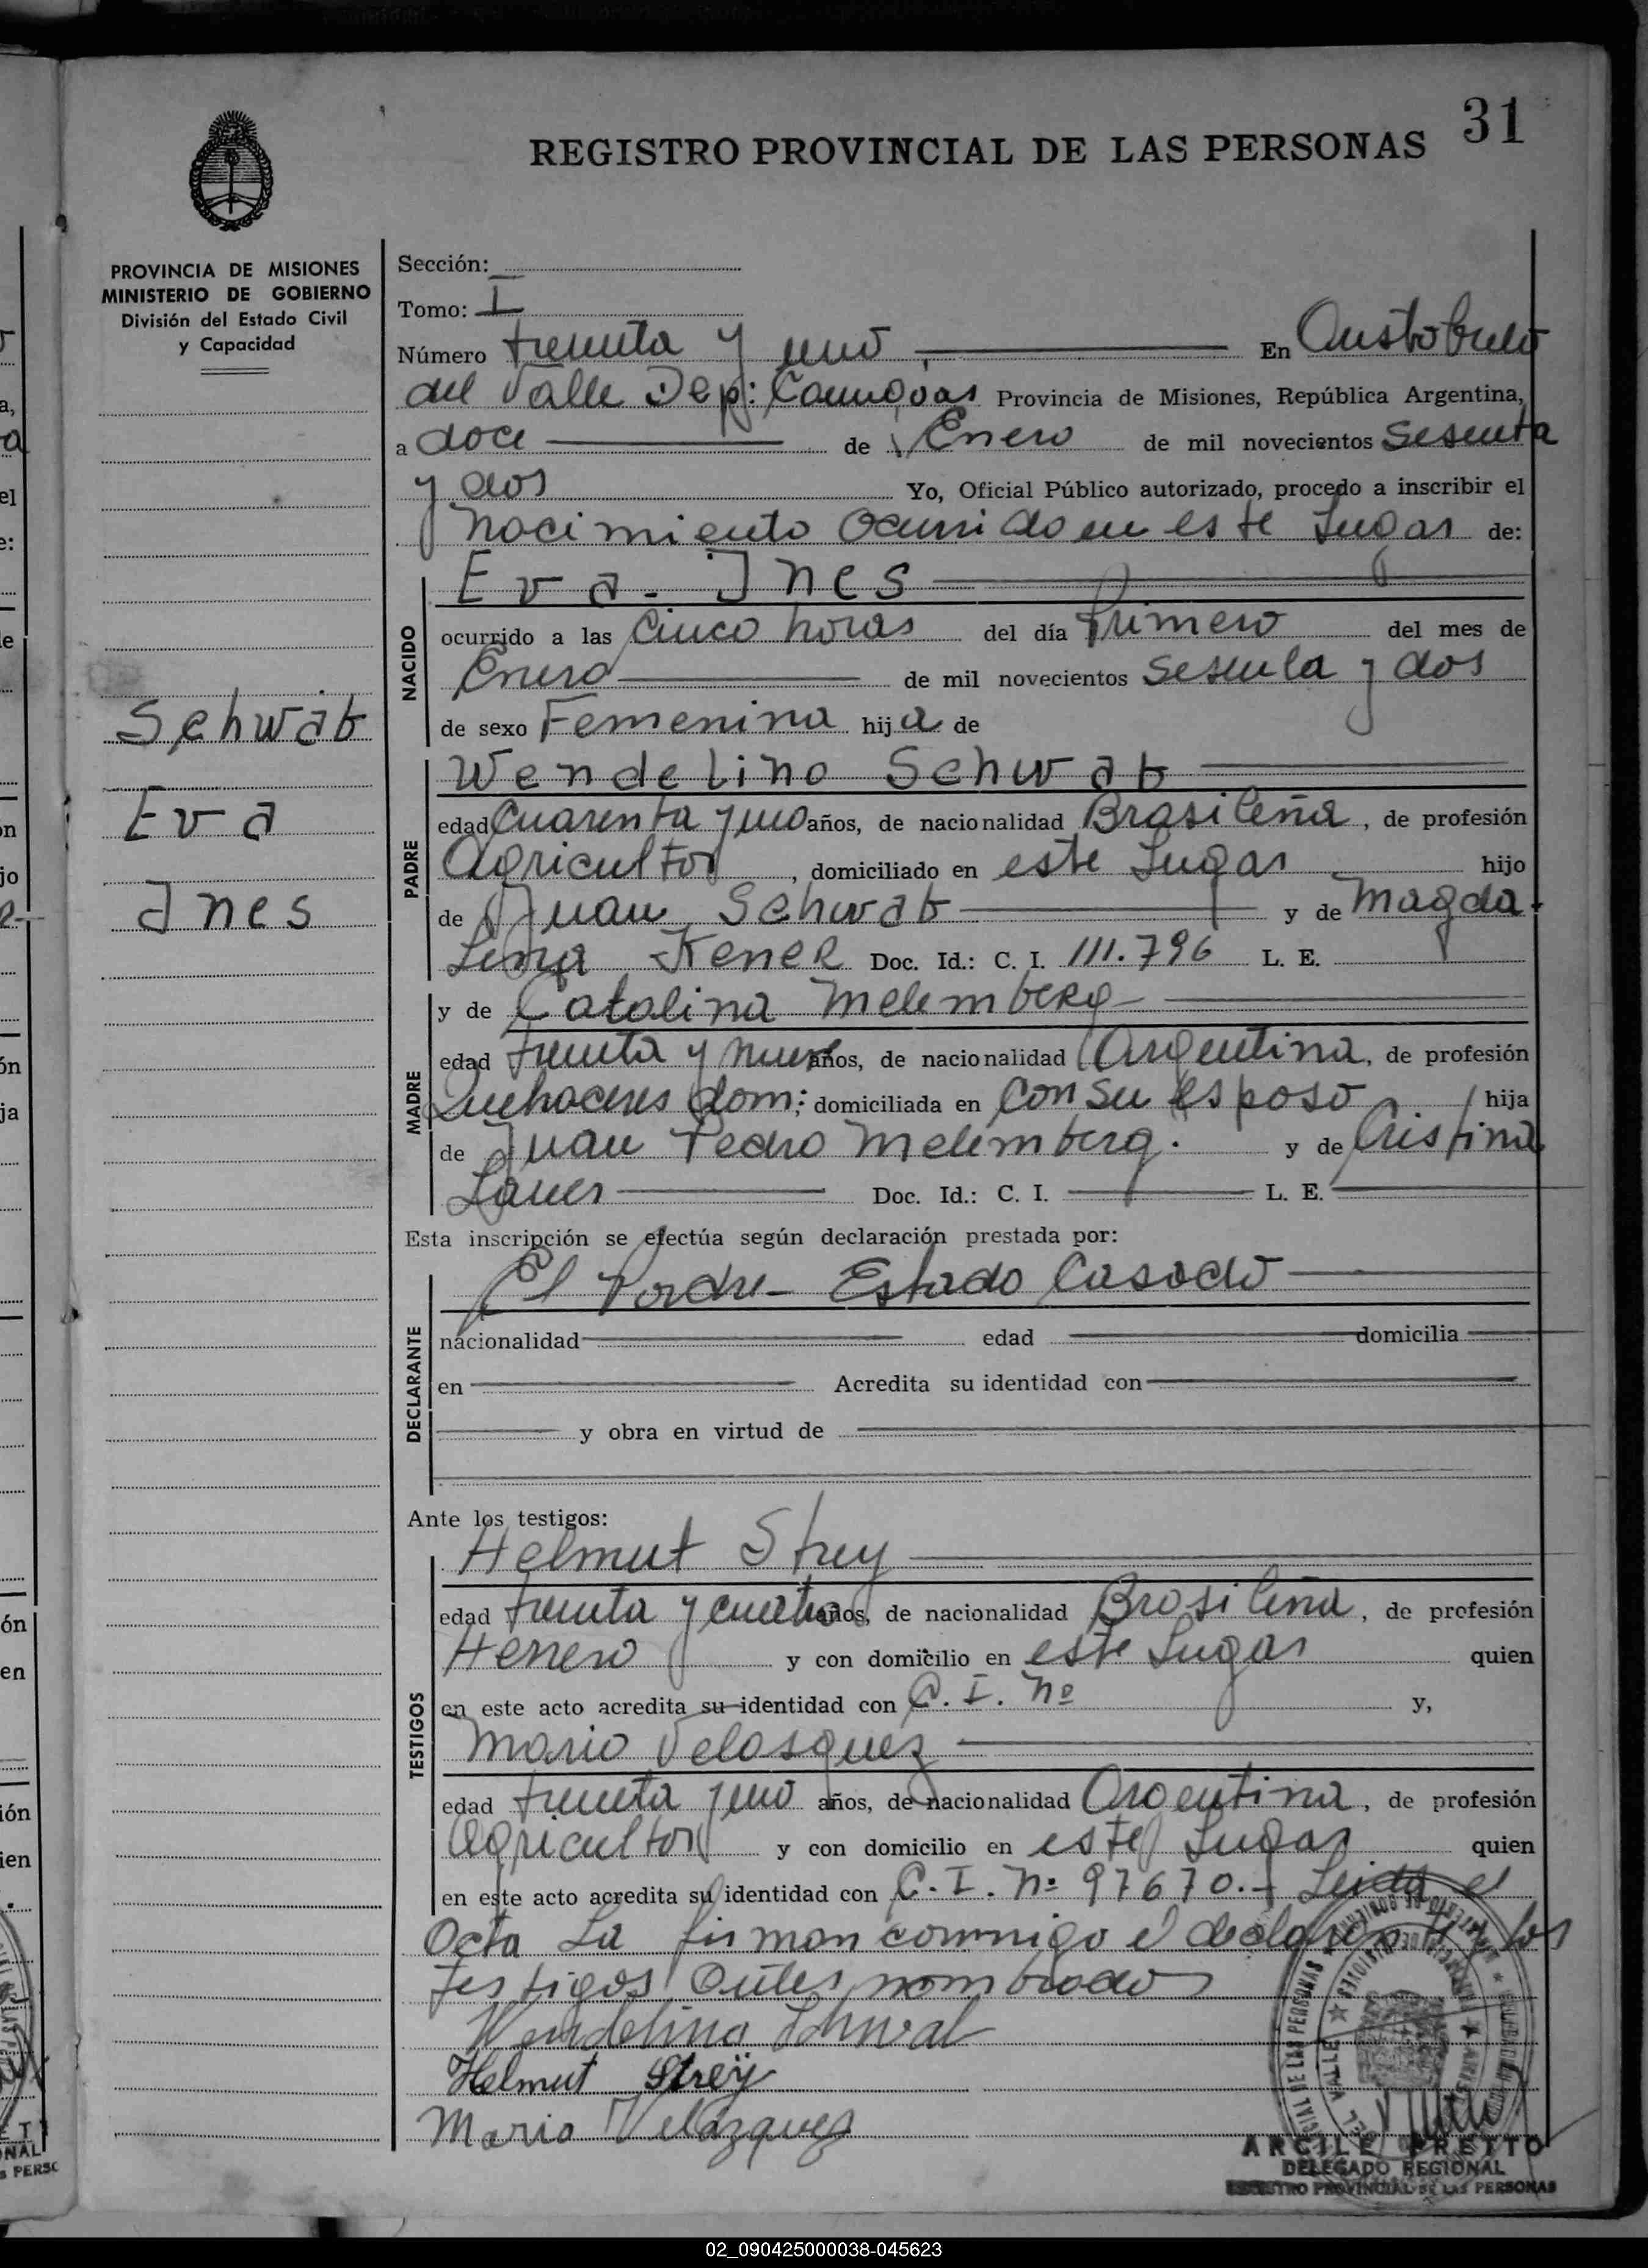 31
REGISTRO PROVINCIAL DE LAS PERSONAS
PROVINCIA DE MISIONES
MINISTERIO DE GOBIERNO
División del Estado Civil
y Capacidad
Schwab
Eva
Ines
Sección:
Tomo: I
Número treinta y uno En Aristobulo
del Valle Dep: Cainguas Provincia de Misiones, República Argentina,
a doce de Enero de mil novecientos sesenta
y dos Yo, Oficial Público autorizado, procedo a inscribir el
nacimiento ocurrido en este lugar de:
Eva Ines
NACIDO
ocurrido a las cinco horas del día Primero del mes de
Enero de mil novecientos sesenta y dos
de sexo Femenina hija de
Wendelino Schwab
PADRE
edad cuarenta y uno años, de nacionalidad Brasileña, de profesión
Agricultor, domiciliado en este lugar hijo
de Juan Schwab y de Magda-
lena Kener Doc. Id.: C. I. 111.796 L. E.
y de Catalina Melemberg
MADRE
edad treinta y nueve años, de nacionalidad Argentina, de profesión
Quehaceres dom; domiciliada en con su esposo hija
de Juan Pedro Melemberg. y de Cristina
Lauer Doc. Id.: C. I. L. E.
Esta inscripción se efectúa según declaración prestada por:
El Padre - Estado Casado
DECLARANTE
nacionalidad edad domicilia
en Acredita su identidad con
y obra en virtud de
Ante los testigos:
Helmut Strey
TESTIGOS
edad treinta y cuatro años, de nacionalidad Brasileña, de profesión
Herrero y con domicilio en este lugar quien
en este acto acredita su identidad con C. I. Nº y,
Mario Velasquez
edad treinta y uno años, de nacionalidad Argentina, de profesión
Agricultor y con domicilio en este lugar quien
en este acto acredita su identidad con C. I. Nº 97670.- Leida el
Acta La firman conmigo el declarante y los
testigos antes nombrados
Wendelino Schwab
Helmut Strey
Mario Velázquez
ARCILE PRETTO
DELEGADO REGIONAL
REGISTRO PROVINCIAL DE LAS PERSONAS
02_090425000038-045623